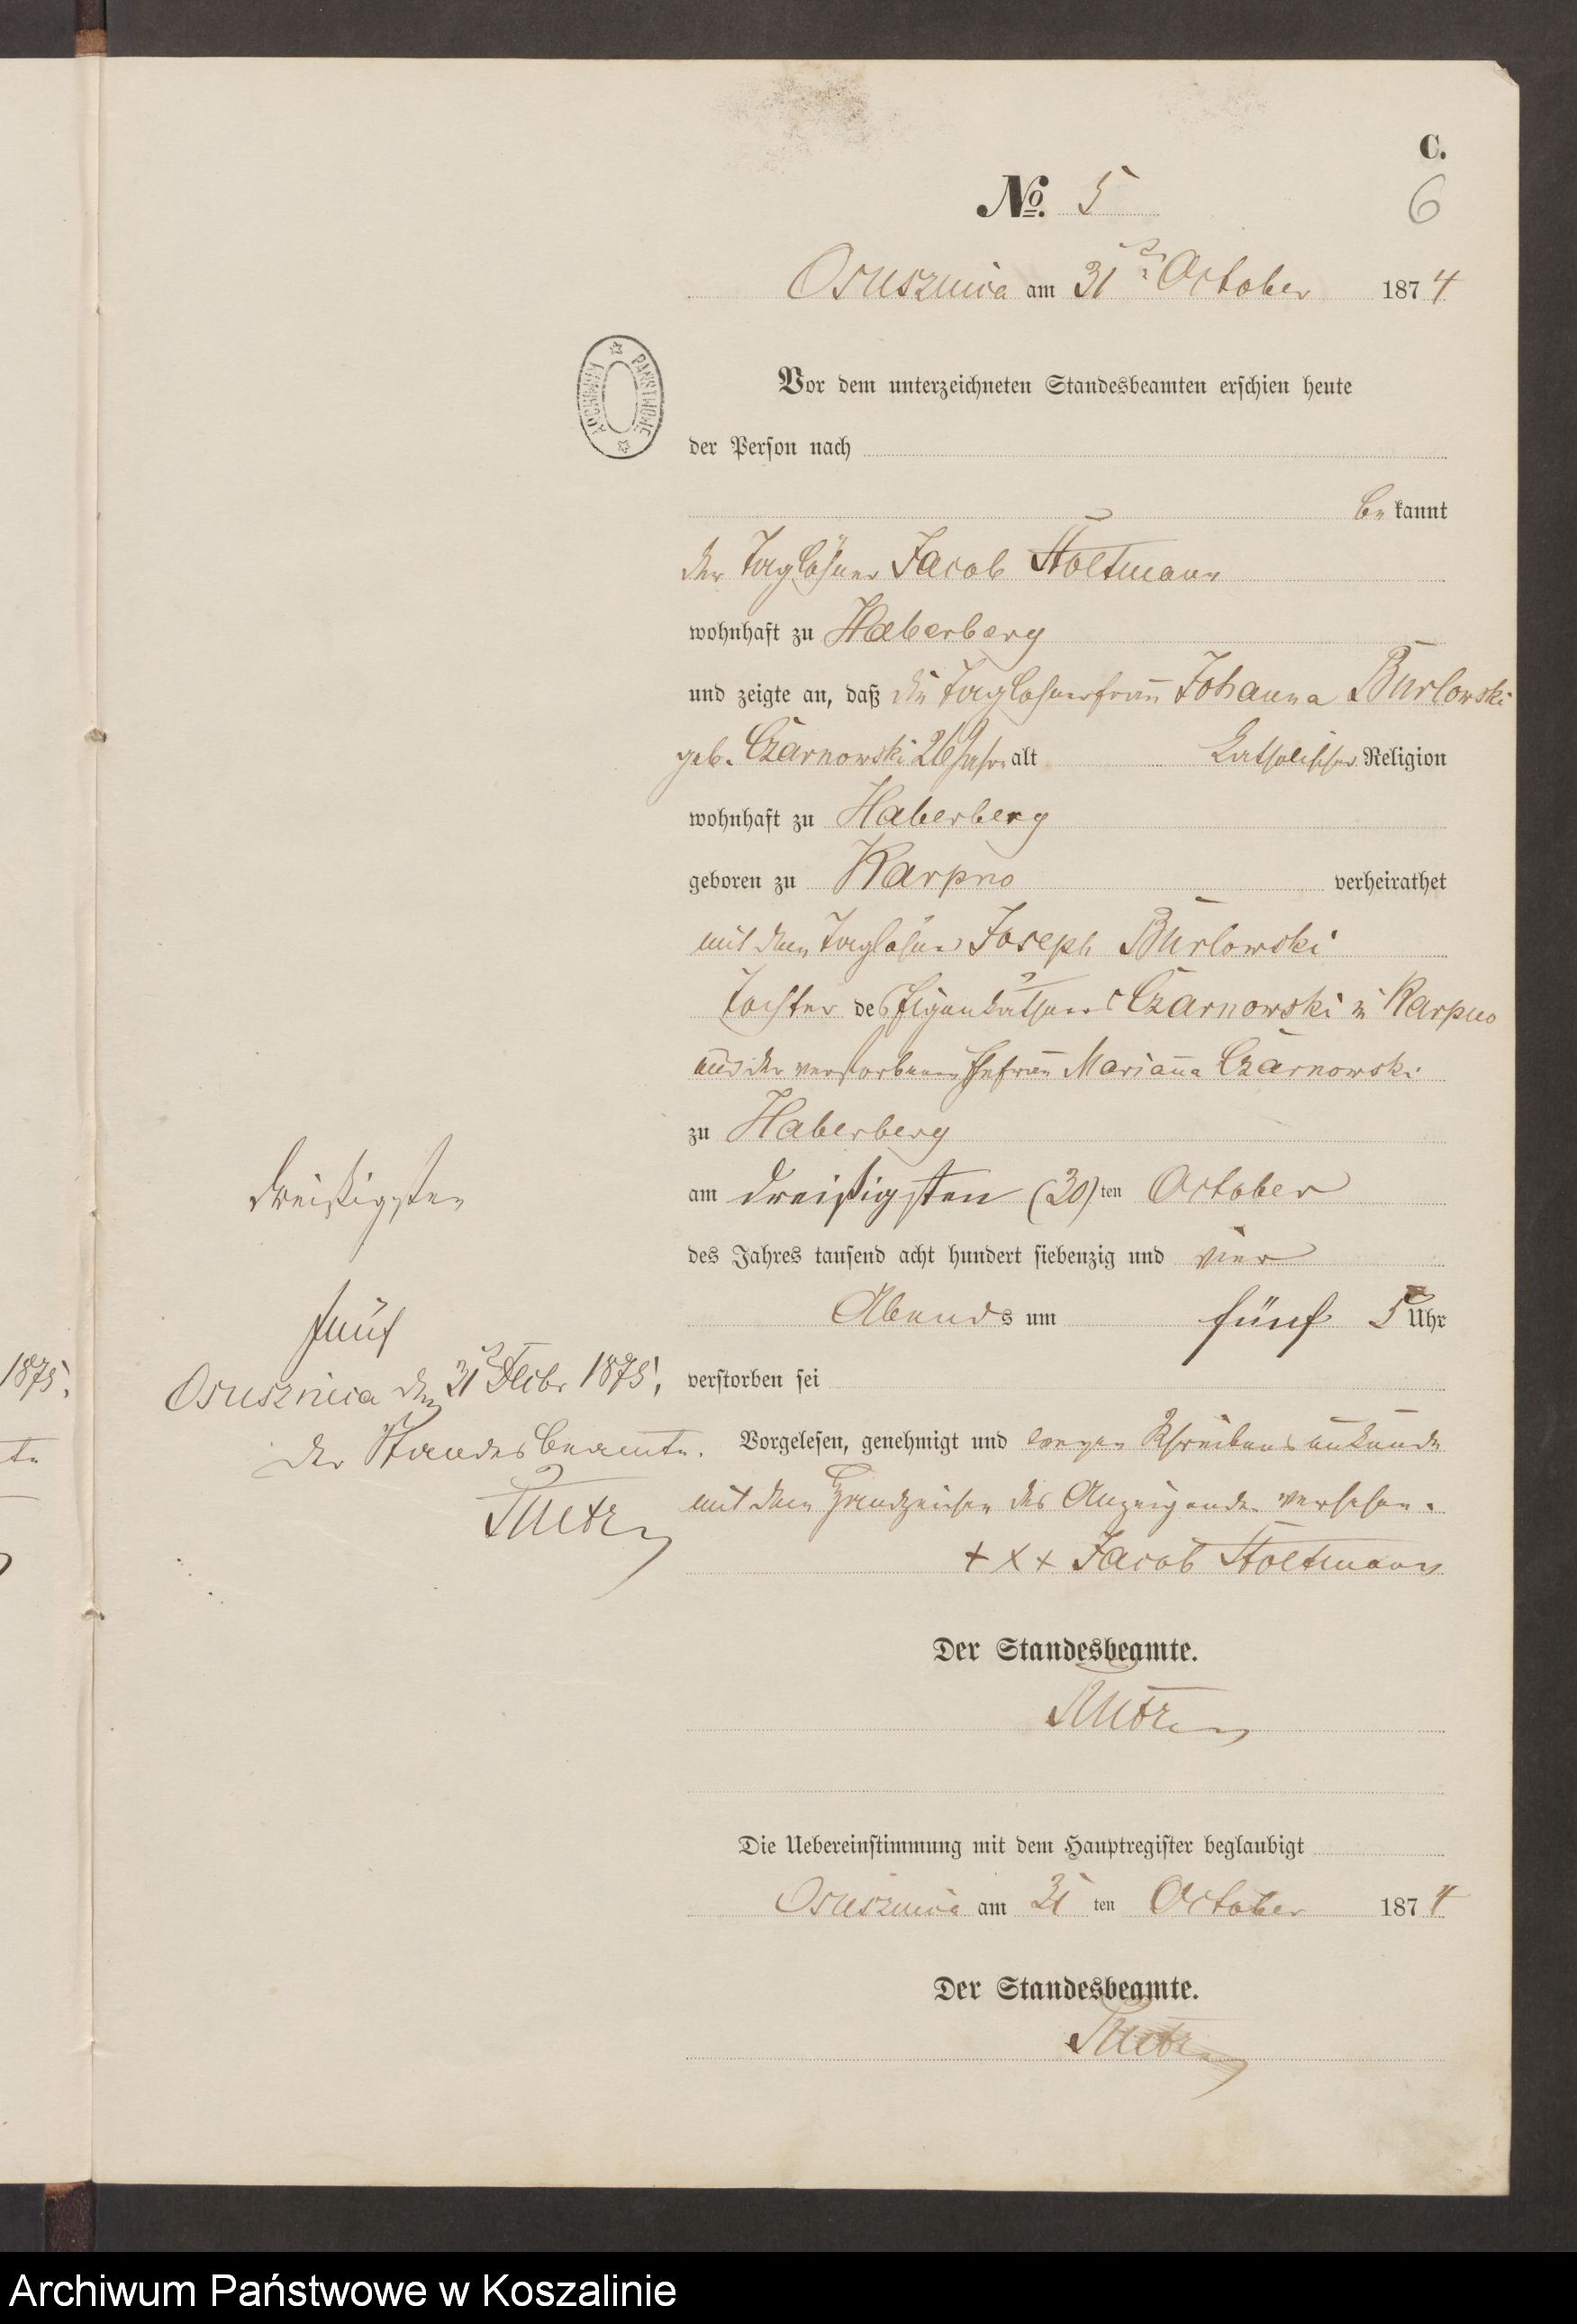 C.
No. 5
6
Osusznica am 31 October 1874
ARCHIWUM PAŃSTWOWE
Vor dem unterzeichneten Standesbeamten erschien heute
der Person nach
be kannt
der Taglöhner Jacob Stoltmann
wohnhaft zu Haberberg
und zeigte an, daß die Taglöhnerfrau Johanna Burlowski
geb. Czarnowski 26 Jahre alt katholischer Religion
wohnhaft zu Haberberg
geboren zu Karpno verheirathet
mit dem Taglöhner Joseph Burlowski
Tochter des Eigenkäthners Czarnowski in Karpno
und der verstorbenen Ehefrau Marianna Czarnowski
zu Haberberg
am dreißigsten (30) ten October
des Jahres tausend acht hundert siebenzig und vier
Abends um fünf 5 Uhr
verstorben sei
Vorgelesen, genehmigt und wegen Schreibensunkunde
mit dem Handzeichen des Anzeigenden versehen.
+ x + Jacob Stoltmann
Der Standesbeamte.
Die Uebereinstimmung mit dem Hauptregister beglaubigt
Osusznica am 31 ten October 1874
Der Standesbeamte.
dreißigsten
fünf
Osusznica den 31 1875.
Der Standesbeamte.
1875.
te
Archiwum Państwowe w Koszalinie